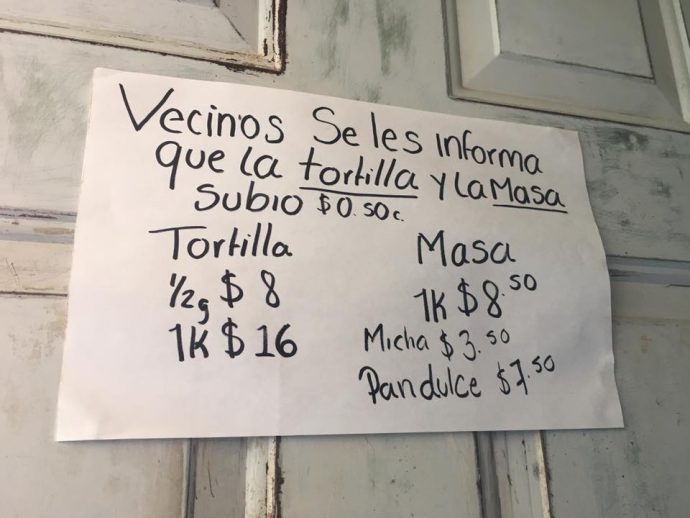 Vecinos Se les informa
que la tortilla y la Masa
subio $0.50c.
Tortilla
1/2g $ 8
1K $ 16
Masa
1K $ 8.50
Micha $ 3.50
Pandulce $7.50